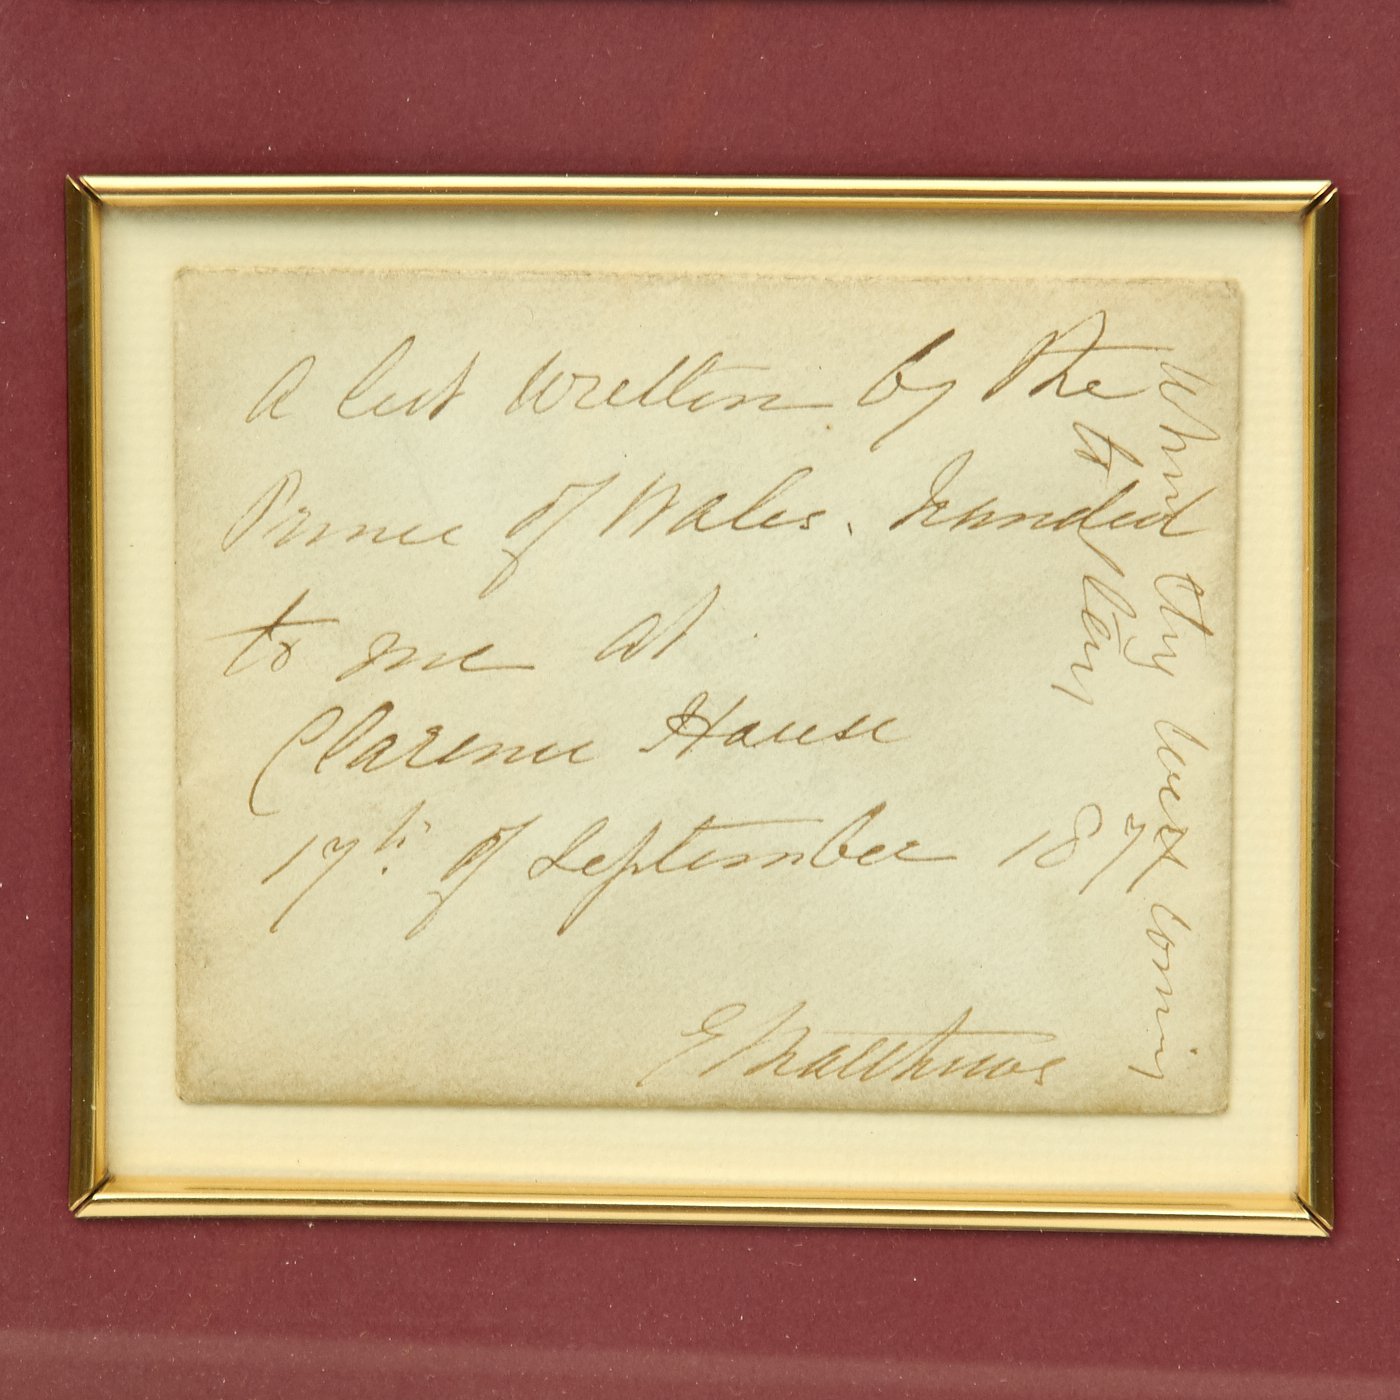 A list written by the
Prince of Wales. handed
to me at
Clarence House
17th. of September 1871
E Matthews
when they were coming
to play